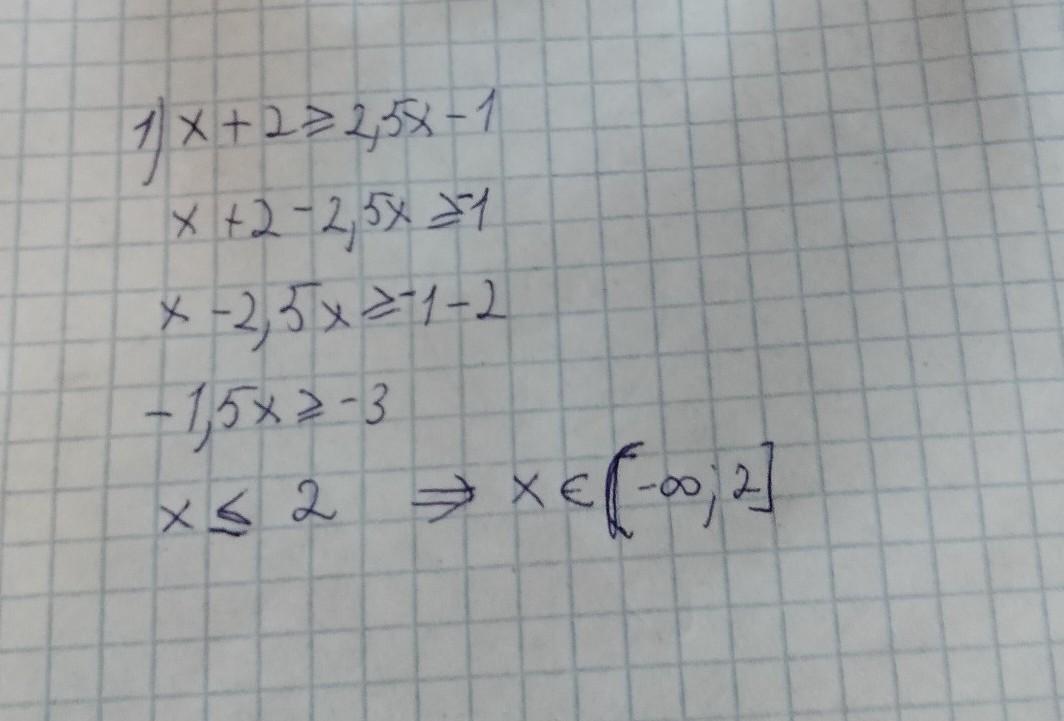 1) x + 2 ≥ 2,5x - 1
x + 2 - 2,5x ≥ -1
x - 2,5x ≥ -1 - 2
-1,5x ≥ -3
x ≤ 2 ⇒ x ∈ (-∞; 2]